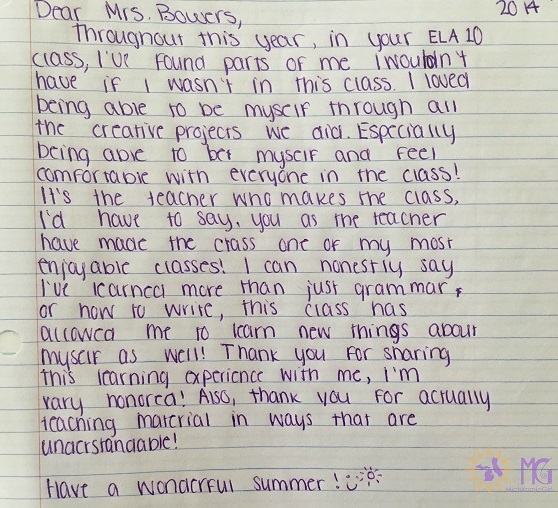 2014
Dear Mrs. Bowers,
Throughout this year, in your ELA 10
class, I've found parts of me I wouldn't
have if I wasn't in this class. I loved
being able to be myself through all
the creative projects we did. Especially
being able to be myself and feel
comfortable with everyone in the class!
It's the teacher who makes the class,
I'd have to say, you as the teacher
have made the class one of my most
enjoyable classes! I can honestly say
I've learned more than just grammar,
or how to write, this class has
allowed me to learn new things about
myself as well! Thank you for sharing
this learning experience with me, I'm
vary honored! Also, thank you for actually
teaching material in ways that are
understandable!
Have a wonderful summer!
MG